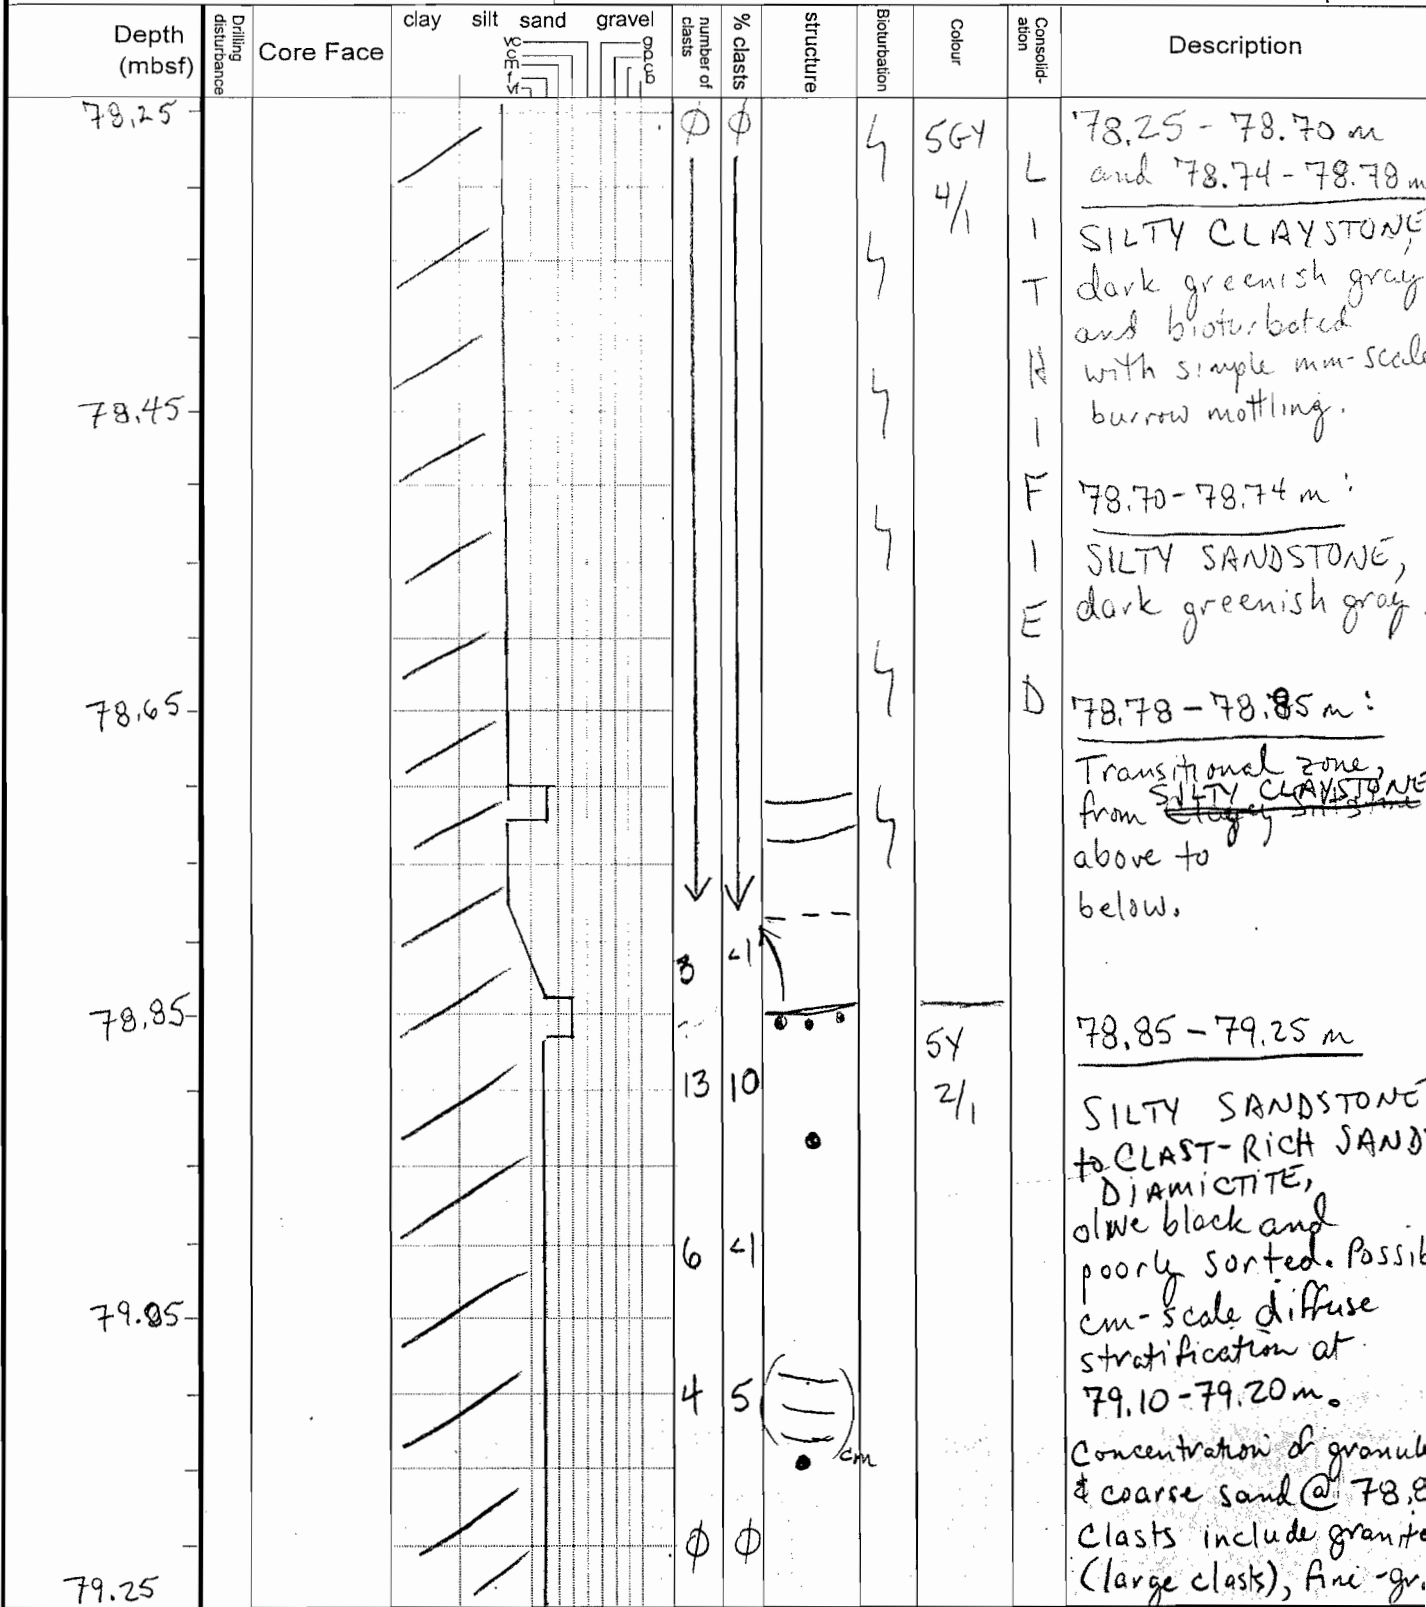 Depth
(mbsf)
Drilling
disturbance
Core Face
clay silt sand gravel
vc
c
m
f
vf
number of
clasts
% clasts
structure
Bioturbation
Colour
Consolid-
ation
Description
78.25
78.45
78.65
78.85
79.05
79.25
Ø Ø
3 <1
13 10
6 <1
4 5
Ø Ø
cm
5GY
4/1
5Y
2/1
L
I
T
H
I
F
I
E
D
78.25 - 78.70 m
and 78.74 - 78.78 m
SILTY CLAYSTONE,
dark greenish gray
and bioturbated
with simple mm-scale
burrow mottling.
78.70 - 78.74 m :
SILTY SANDSTONE,
dark greenish gray.
78.78 - 78.85 m :
Transitional zone,
SILTY CLAYSTONE
from
above to
below.
78.85 - 79.25 m
SILTY SANDSTONE
to CLAST-RICH SANDY
DIAMICTITE,
olive black and
poorly sorted. Possib
cm-scale diffuse
stratification at
79.10-79.20 m.
Concentration of granule
& coarse sand @ 78.8
Clasts include granite
(large clasts), fine-gr.